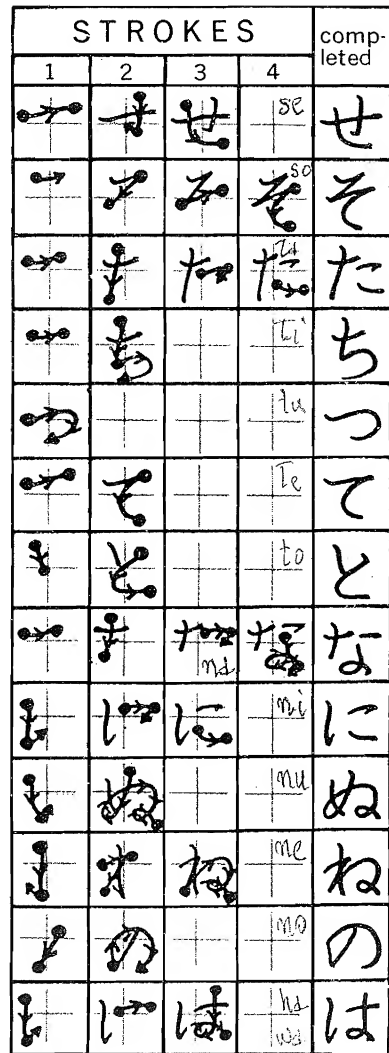 STROKES
comp-
leted
1 2 3 4
se せ
so そ
ta た
ti ち
tu つ
Te て
to と
na な
ni に
nu ぬ
ne ね
no の
ha は
wa